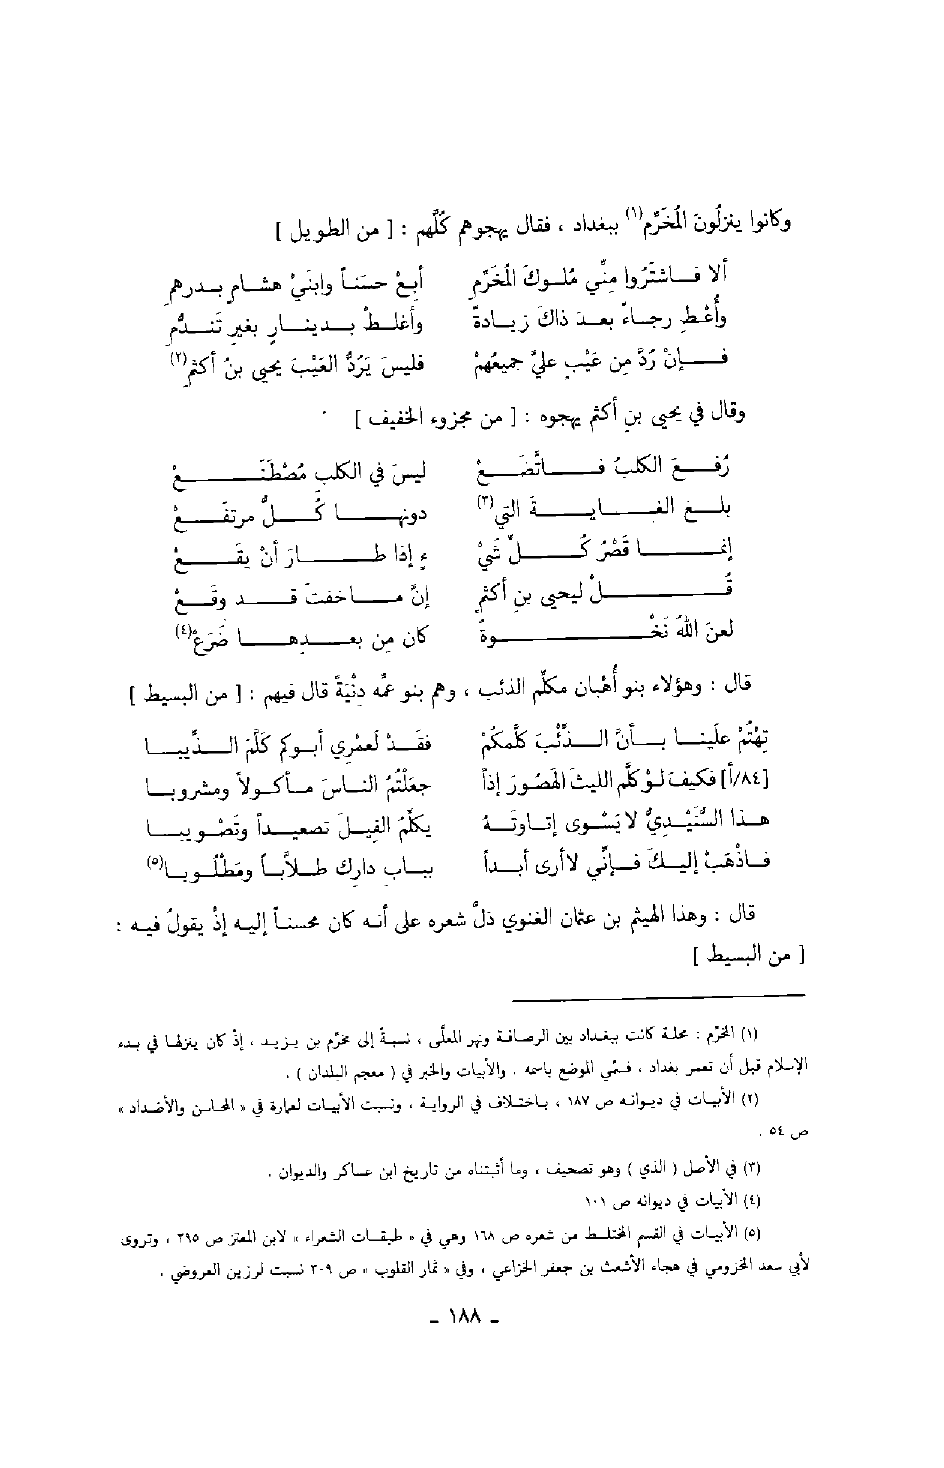 وكانوا ينزلُونَ المُخَرِّم(١) ببغداد ، فقال يهجوهم كُلَّهم : [ من الطويل ]
ألا فاشتَرُوا منِّي مُلوكَ المُخَرِّم أبِعْ حسَناً وابنَيْ هشامٍ بدرهمِ
وأُعْطِ رجاءً بعدَ ذاكَ زيادةً وأغلطْ بدينارٍ بغيرِ تَندُّمِ
فإنْ رُدَّ من عَيْبٍ عليَّ جميعُهُمْ فليسَ يَرُدُّ العَيْبَ يحيى بنُ أكثمِ(٢)
وقال في يحيى بنِ أكثم يهجوه : [ من مجزوء الخفيف ]
رُفِعَ الكلبُ فاتَّضَعْ ليسَ في الكلبِ مُصْطَنَعْ
بلغَ الغايةَ التي(٣) دونها كُلُّ مرتفَعْ
إنما قَصْرُ كُلِّ شَيْ ءٍ إذا طارَ أنْ يقَعْ
قُلْ ليحيى بنِ أكثمٍ إنَّ ماخفتَ قد وقَعْ
لعنَ اللهُ نَخْوةً كان مِن بعدِها ضَرَعْ(٤)
قال : وهؤلاء بنو أُهْبان مكلِّم الذئب ، وهم بنو عمِّه دِنْيَةً قال فيهم : [ من البسيط ]
تِهْتُمْ علَينا بأنَّ الذِّئْبَ كلَّمكُمْ فقدْ لَعمْرِي أبوكم كَلَّمَ الذِّيبا
[٨٤/أ] فكيفَ لوْ كلَّمَ الليثَ الهَصُورَ إذاً جعَلْتُمُ الناسَ مأكولاً ومشروبا
هذا السُّنَيْديُّ لا يَسْوى إتاوتَهُ يكلِّمُ الفيلَ تصعيداً وتَصْويبا
فاذْهَبْ إليكَ فإنِّي لاأرى أبداً ببابِ دارِك طلاَّباً ومَطْلُوبا(٥)
قال : وهذا الهيثم بن عثمان الغنوي دَلَّ شعره على أنه كان محسناً إليه إذْ يقولُ فيه :
[ من البسيط ]
(١) المخرِّم : محلة كانت ببغداد بين الرصافة ونهر المعلَّى ، نسبةً إلى مخرِّم بن يزيد ، إذْ كان ينزلها في بدء
الإسلام قبل أن تعمر بغداد ، فسُمِّي الموضع باسمه . والأبيات والخبر في ( معجم البلدان ) .
(٢) الأبيات في ديوانه ص ١٨٧ ، باختلاف في الرواية ، ونسبت الأبيات لعمارة في « المحاسن والأضداد »
ص ٥٤ .
(٣) في الأصل ( الذي ) وهو تصحيف ، وما أثبتناه من تاريخ ابن عساكر والديوان .
(٤) الأبيات في ديوانه ص ١٠١
(٥) الأبيات في القسم المختلط من شعره ص ١٦٨ وهي في « طبقات الشعراء » لابن المعتز ص ٢٩٥ ، وتروى
لأبي سعد المخزومي في هجاء الأشعث بن جعفر الخزاعي ، وفي « ثمار القلوب » ص ٣٠٩ نسبت لرزين العروضي .
ـ ١٨٨ ـ